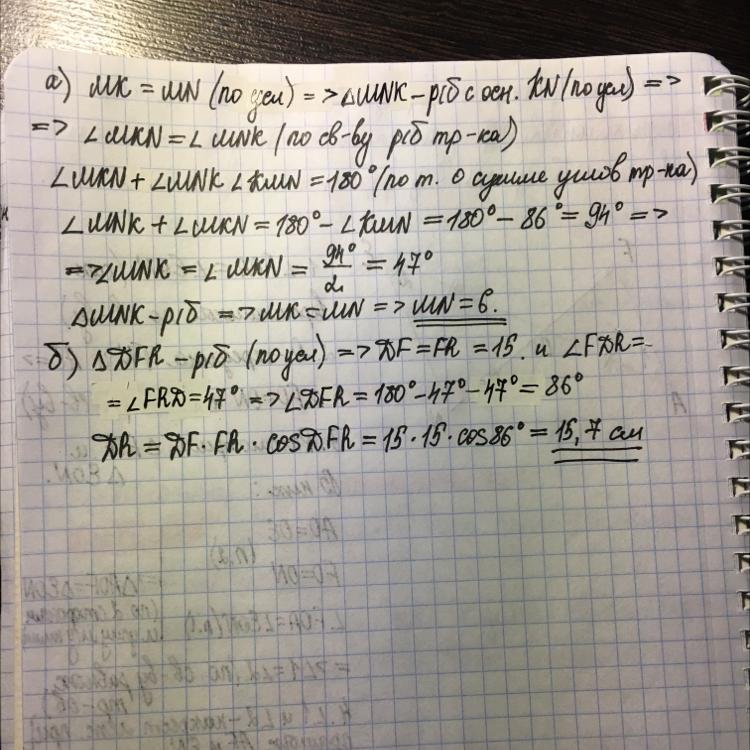 а) MK = MN (по усл) => △MNK – р/б с осн. KN (по усл) =>
=> ∠MKN = ∠MNK (по св-ву р/б тр-ка)
∠MKN + ∠MNK ∠KMN = 180° (по т. о сумме углов тр-ка)
∠MNK + ∠MKN = 180° – ∠KMN = 180° – 86° = 94° =>
=> ∠MNK = ∠MKN = 94°/2 = 47°
△MNK – р/б => MK = MN => MN = 6.
б) △DFR – р/б (по усл) => DF = FR = 15. и ∠FDR =
= ∠FRD = 47° => ∠DFR = 180° – 47° – 47° = 86°
DR = DF · FR · cosDFR = 15 · 15 · cos86° = 15,7 см